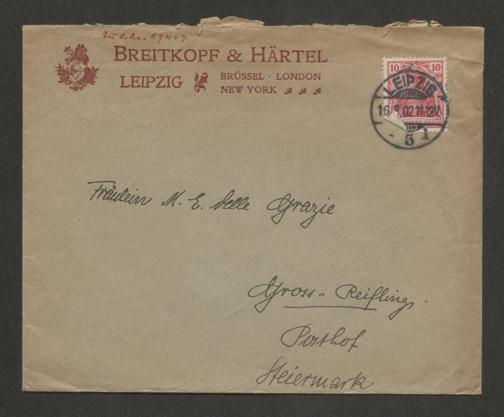 BREITKOPF & HÄRTEL
LEIPZIG BRÜSSEL · LONDON
NEW YORK
10 10
LEIPZIG
16.9.02 11-12V.
3
Fräulein M. E. delle Grazie
Gross-Reifling.
Posthof
Steiermark